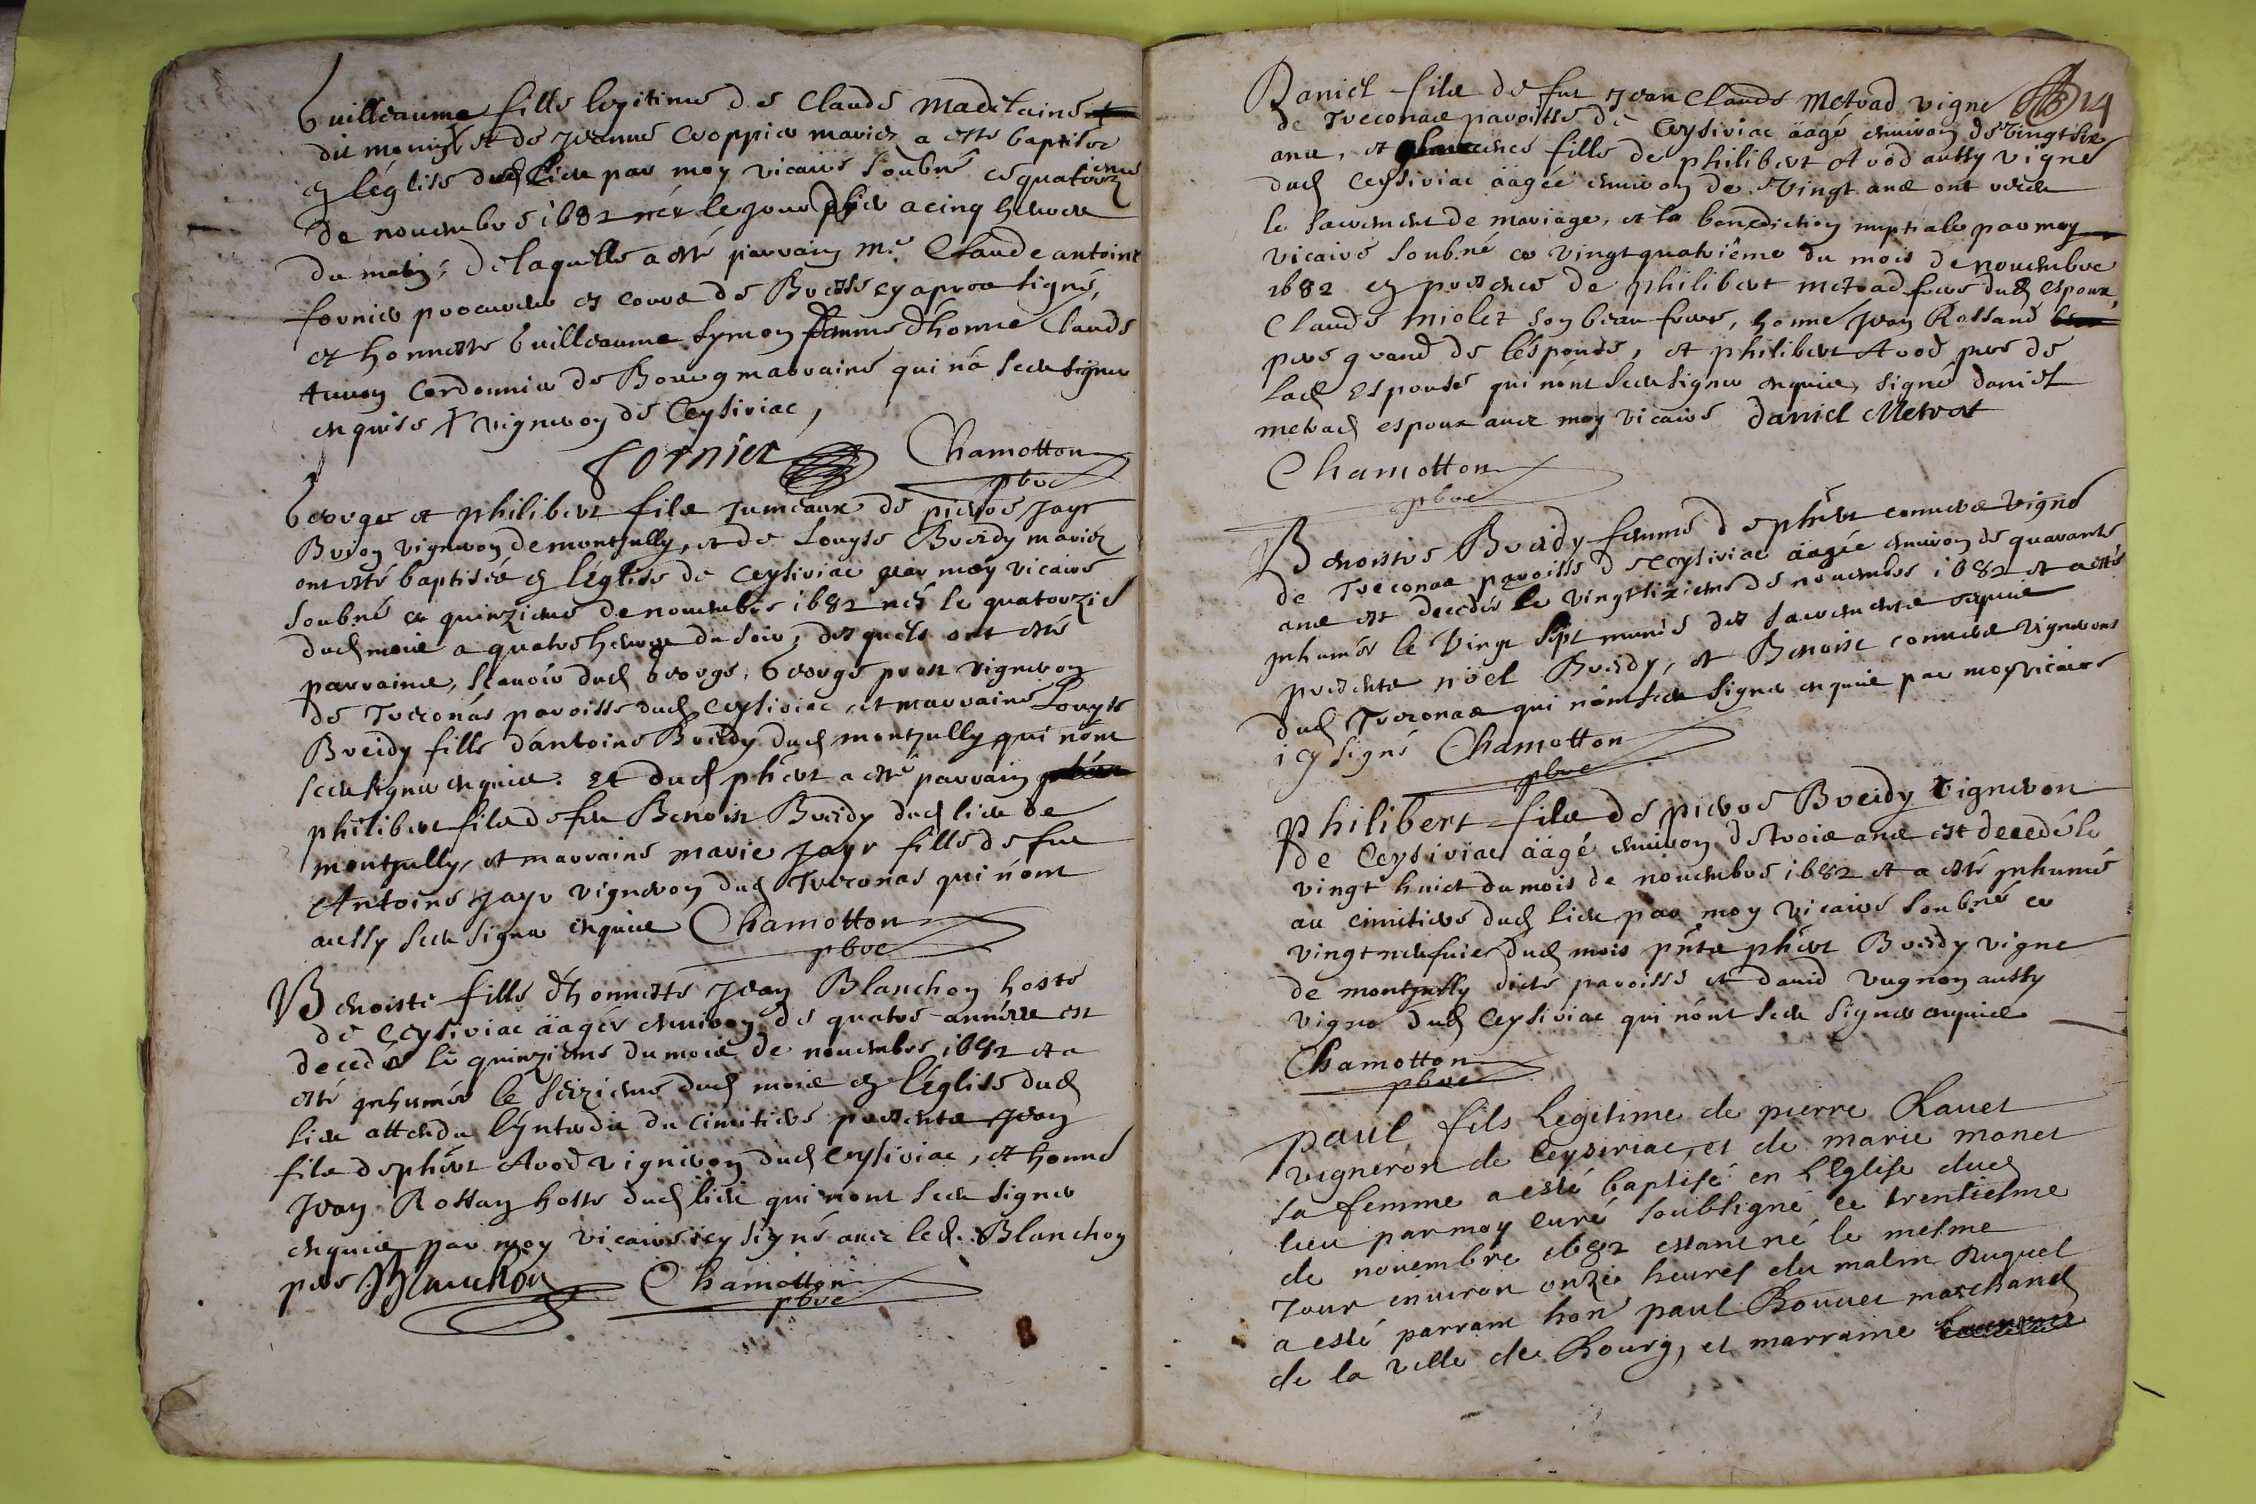 Guilleaume fille legitime de Claude
du moulin et de Jeanne Croppier mariez a esté baptisée
en léglise dud. lieu par moy vicaire soubné ce quatorziem
de novembre 1682 née le jour a cinq heures
du matin, de laquelle a esté parrain Mr. Claude antoine
fornier procureur en cours de Bresse cy apres signé,
et honneste Guilleaume Symon femme d'honne Claude
cordonnier de Bourg marraine qui na sceu signer
enquise vigneron de Ceysiriac,
Fornier Chamotton
pbre
George et philibert fils jumeaux de pierre Jayr
Buron vigneron de montjully, et de Louyse Breidy mariez
ont esté baptisés en léglise de Ceysiriac par moy vicaire
soubné ce quinzieme de novembre 1682 nés le quatorzie
dud. mois a quatre heures du soir, desquels ont esté
parrains, scavoir dud. George, George prost vigneron
de Treconas paroisse dud. Ceysiriac, et marraine Louyse
Breidy fille dantoine Breidy dud. montjully qui nont
sceu signer enquis. et dud. phibert a esté parrain
philibert fils de feu Benoist Breidy dud. lieu de
montjully, et marraine marie Jayr fille de feu
Antoine Jayr vigneron dud. Treconas qui nont
aussy sceu signer enquis Chamotton
pbre
Benoiste fille d'honneste Jean Blanchon hoste
de Ceysiriac äagée environ de quatre années est
decedée le quinzieme du mois de novembre 1682 et a
esté inhumée le seizieme dud. mois en léglise dud.
lieu attendu lyntredit du cimitiere presents Jean
fils de phibert Avod vigneron dud. Ceysiriac, et honne
Jean Rossan hoste dud. lieu qui nont sceu signer
enquis par moy vicaire icy signé avec led. Blanchon
pere Blanchon Chamotton
pbre
Daniel fils de feu Jean Claude Metrad vigne 14
de Treconas paroisse de Ceysiriac äagé environ de vingt six
ans, et fille de philibert Avod aussy vigne
dud. Ceysiriac äagée environ de vingt ans ont receu
le sacrement de mariage, et la benediction nuptiale par moy
vicaire soubné ce vingt quatriéme du mois de novembre
1682 en presence de philibert metrad frere dud. espoux,
Claude miolet son beau frere, honne Jean Rossand
pere grand de l'espouse, et philibert Avod pere de
lad. espouse qui nont sceu signer enquis, signé daniel
metrad espoux avec moy vicaire daniel Metrat
Chamotton
pbre
Benoistre Breidy femme de phibert vigne
de Treconas paroisse de Ceysiriac äagée environ de quarante
ans est decedée le vingt sixieme de novembre 1682 et a esté
inhumée le vingt sept munie des sacrements requis
presents noël Breidy, et Benoist vigneron
dud. Treconas qui nont sceu signer enquis par moy vicaire
icy signé Chamotton
pbre
Philibert fils de pierre Breidy vigneron
de Ceysiriac äagé environ de trois ans est decedé le
vingt huict du mois de novembre 1682 et a esté inhumé
au cimitiere dud. lieu par moy vicaire soubné ce
vingt neufvie dud. mois pnts phibert Breidy vigne
de montjully dicte paroisse et david vugnon aussy
vigne dud. Ceysiriac qui nont sceu signer enquis
Chamotton
pbre
paul fils legitime de pierre Ravet
vigneron de Ceyseriac, et de marie monet
sa femme a esté baptisé en l'Eglise dud.
lieu par moy curé soubsigné ce trentiesme
de novembre 1682 estant né le mesme
Jour environ onze heures du matin Duquel
a esté parrain hon paul Bouvet marchand
de la ville de Bourg, et marraine